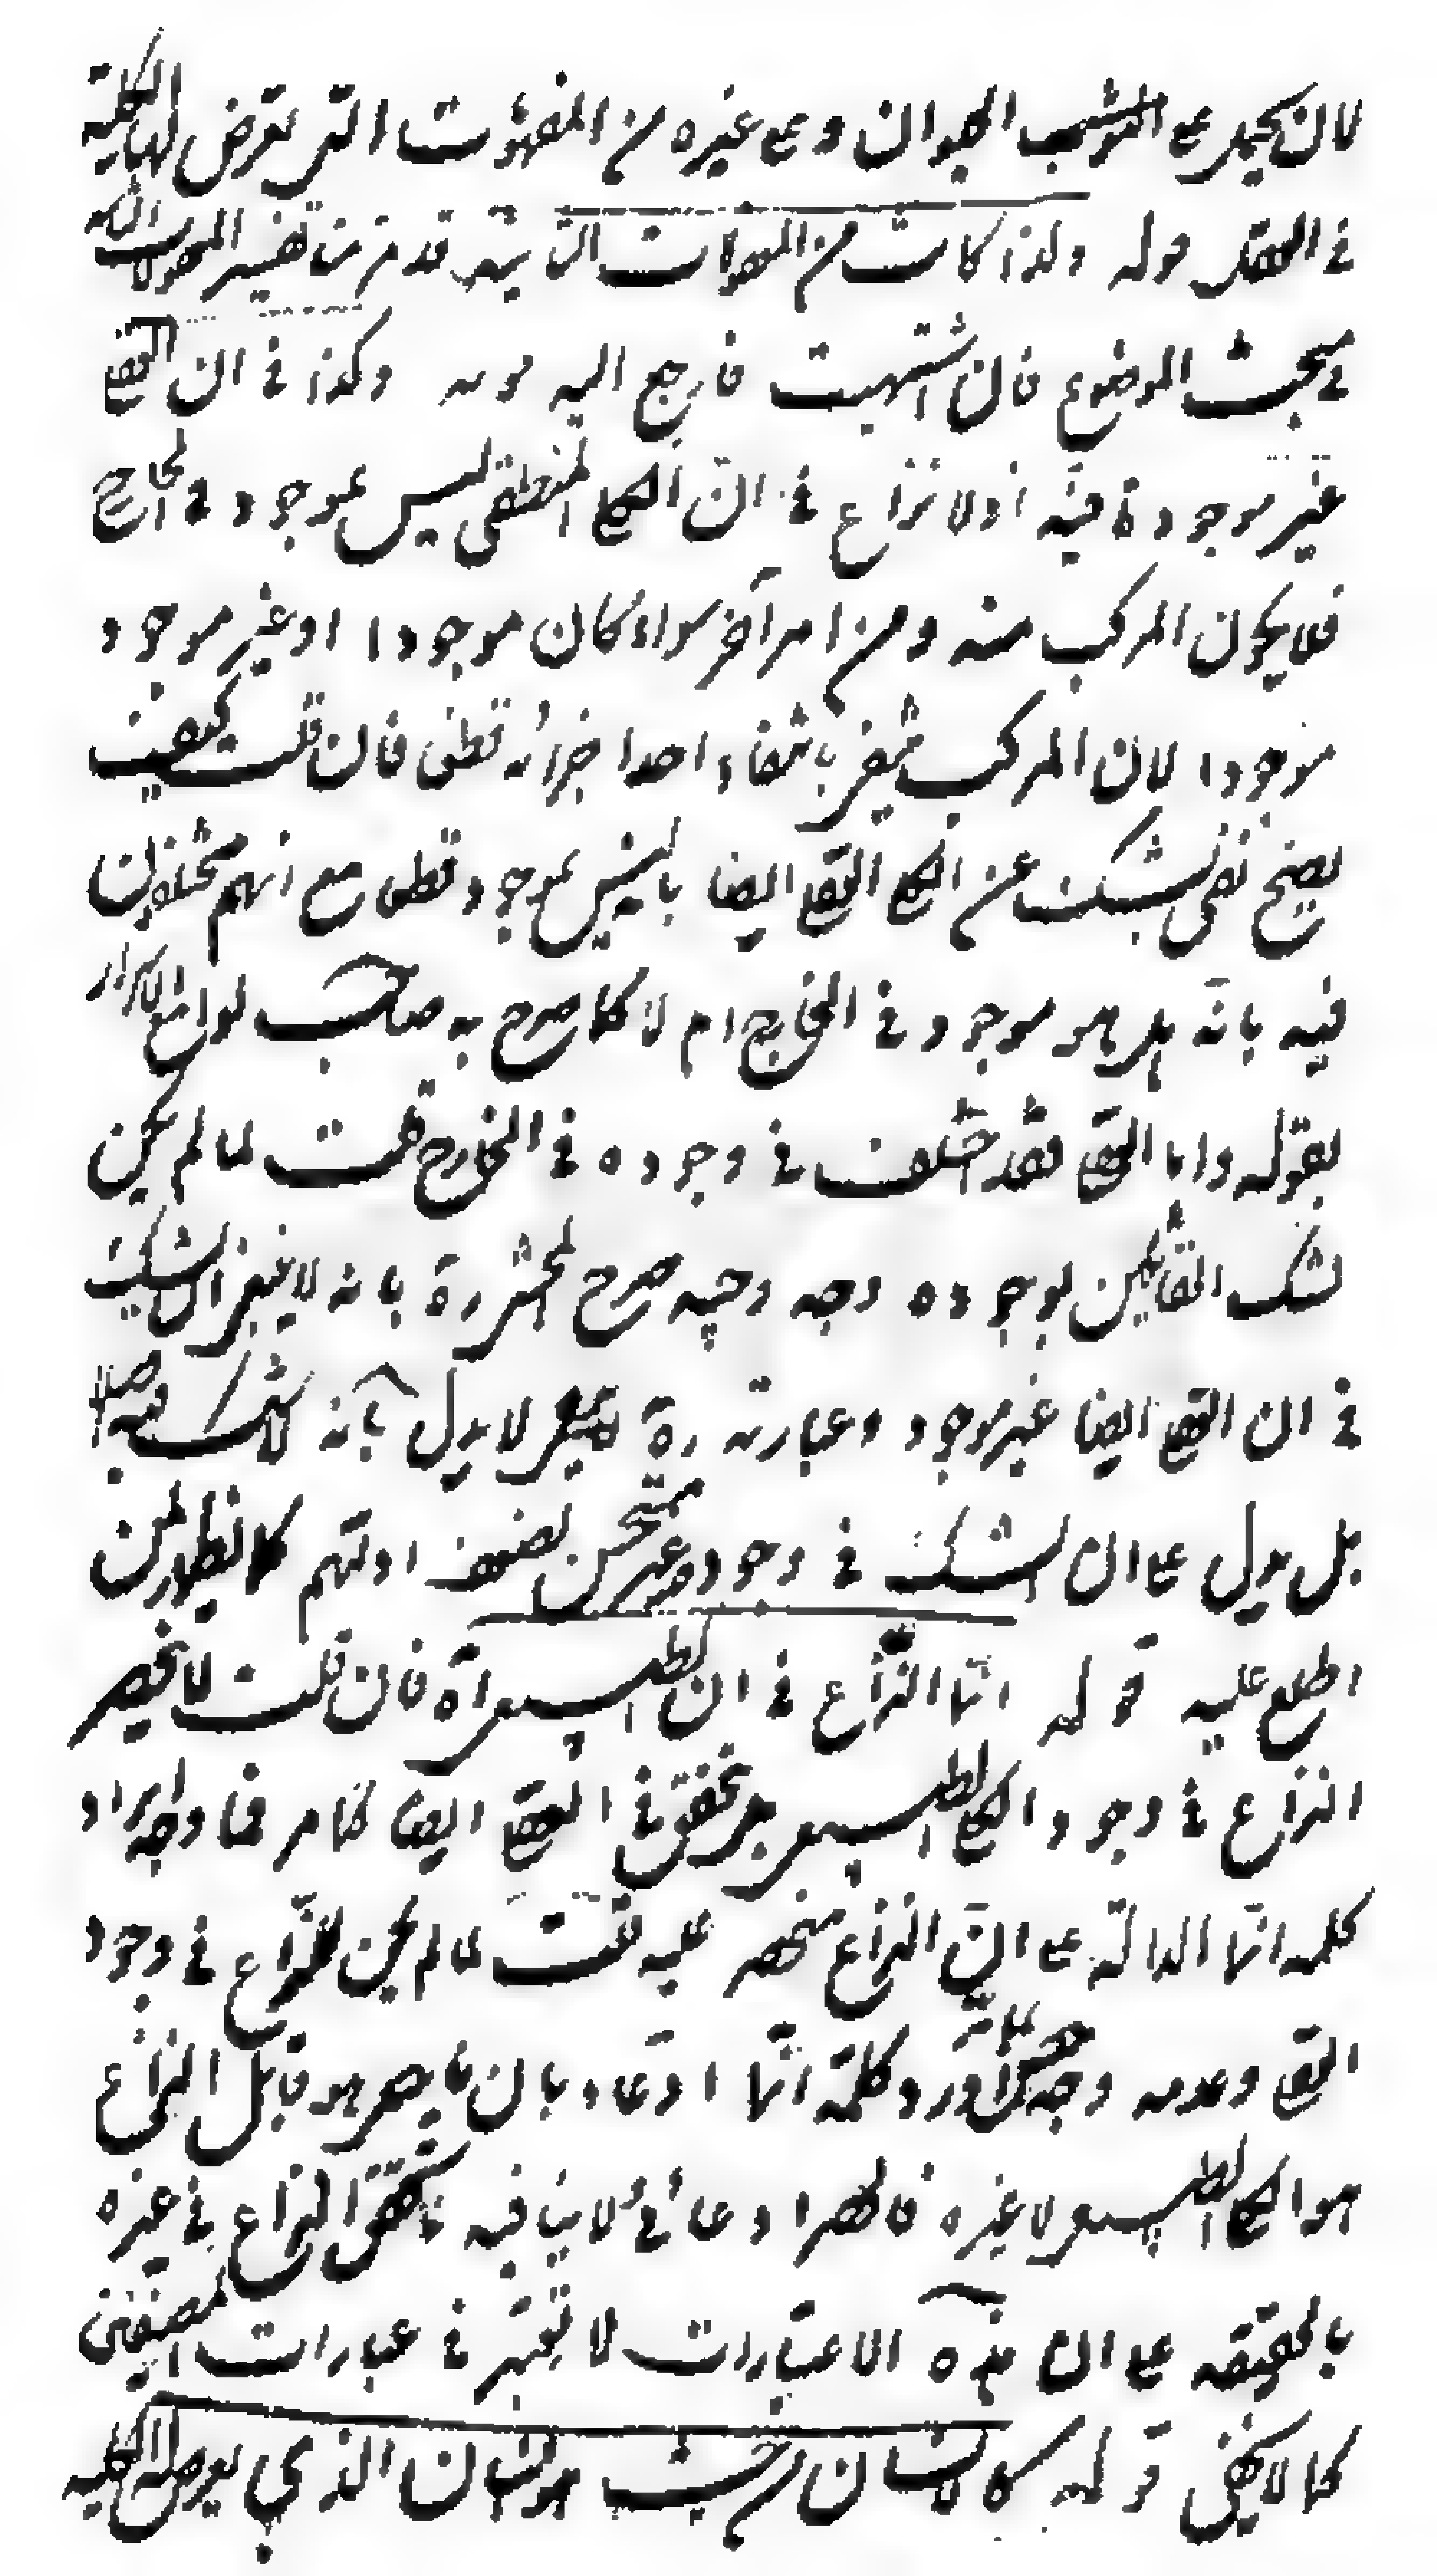 لان يحمل على الحيوان وعلى غيره من المفهومات التي تعرض لها الكلية
في العقل قوله ولذا كانت من المعقولات الثانية قد مر منا تفسير المعقولات الثانية
في بحث الموضوع فان اشتهيت فارجع اليه قوله وكذا في ان العقلي
غير موجودة فيه اذ لا نزاع في ان الكلي المنطقي ليس بموجود في الخارج
فلا يكون المركب منه ومن امر آخر سواء كان موجودا او غير موجود
موجودا لان المركب ينتفي بانتفاء احد اجزائه قطعا فان قلت كيف
يصح نفي الشك عن الكلي العقلي ايضا بانه ليس بموجود قطعا مع انهم مختلفون
فيه بانه هل هو موجود في الخارج ام لا كما صرح به صاحب لوامع الاسرار
بقوله واما العقلي فقد اختلف في وجوده في الخارج قلت لما لم يكن
لشك القائلين بوجوده وجه وجيه صرح المحشي ره بانه لا ينبغي ان يشك
في ان العقلي ايضا غير موجود وعبارته ره لا يدل بانه لا شك فيه اصلا
بل يدل على ان الشك في وجوده غير مستحسن لضعف ادلتهم كما يظهر لمن
اطلع عليه قوله انما النزاع في ان الطبيعي اه فان قلت لا ينحصر
النزاع في وجود الكلي الطبيعي بل يتحقق في العقلي ايضا كما مر فما وجه ايراد
كلمة انما الدالة على ان النزاع منحصر عليه قلت لما لم يكن للنزاع في وجود
العقلي وعدمه وجه اورد كلمة انما ادعاء بان ما هو قابل النزاع
هو الكلي الطبيعي لا غيره فالحصر ادعائي لا ينافيه تحقق النزاع في غيره
بالحقيقة على ان هذه الاعتبارات لا تعتبر في عبارات المصنفين
كما لا يخفى قوله كالانسان من حيث هو انسان الذي يعرضه الكلية